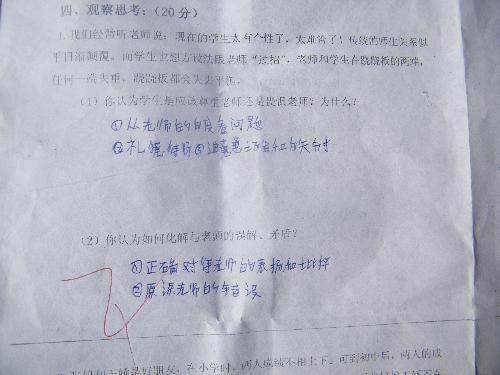 四、观察思考：（20分）
1.我们经常听老师说：现在的学生太有个性了，太难管了！传统的师生关系似
乎日渐颠覆，而学生也想方设法跟老师“过招”，老师和学生在跷跷板的两端，
任何一端失重，跷跷板都会失去平衡。
（1）你认为学生是应该尊重老师还是畏惧老师？为什么？
①从老师的角度看问题
②礼貌待师③注意
（2）你认为如何化解与老师的误解、矛盾？
①正确对待老师的表扬和批评
②原谅老师的错误
是好朋友，在小学时，两人成绩不相上下。可到初中后，两人的成